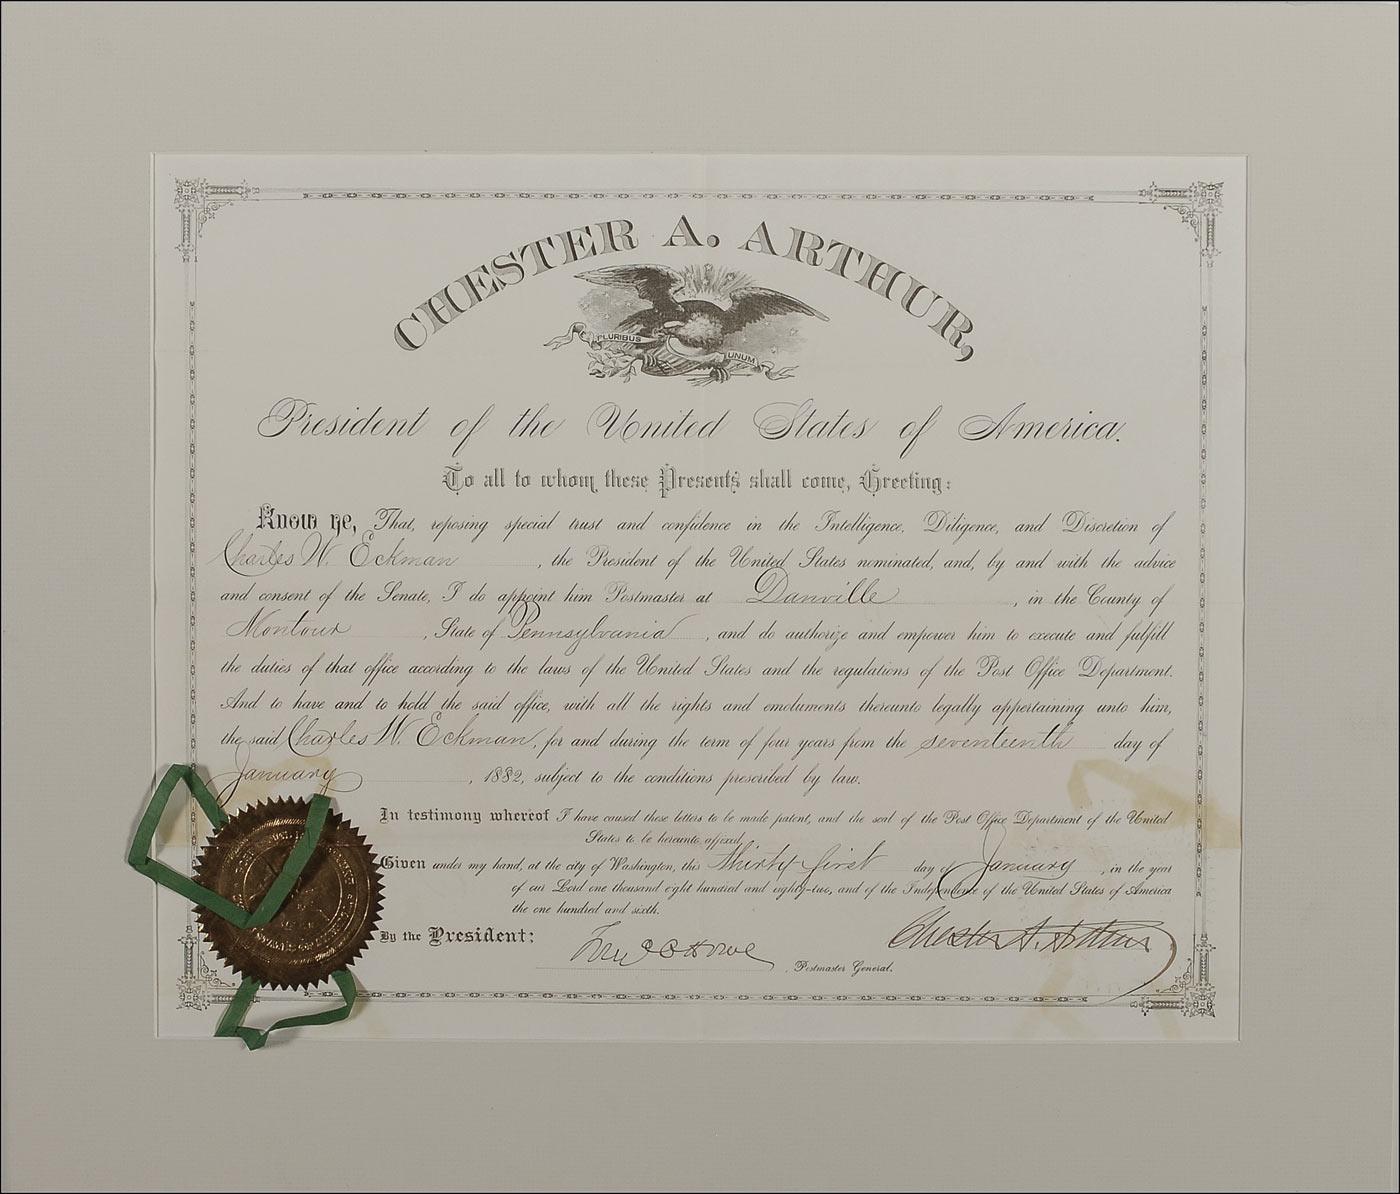 CHESTER A. ARTHUR,
PLURIBUS
UNUM
President of the United States of America.
To all to whom these Presents shall come, Greeting:
Know ye, That, reposing special trust and confidence in the Intelligence, Diligence, and Discretion of
Charles W. Eckman, the President of the United States nominated, and, by and with the advice
and consent of the Senate, I do appoint him Postmaster at Danville, in the County of
Montour, State of Pennsylvania, and do authorize and empower him to execute and fulfill
the duties of that office according to the laws of the United States and the regulations of the Post Office Department.
And to have and to hold the said office, with all the rights and emoluments thereunto legally appertaining unto him,
the said Charles W. Eckman, for and during the term of four years from the seventeenth day of
January, 1882, subject to the conditions prescribed by law.
In testimony whereof I have caused these letters to be made patent, and the seal of the Post Office Department of the United
States to be hereunto affixed.
Given under my hand, at the city of Washington, this thirty first day of January, in the year
of our Lord one thousand eight hundred and eighty-two, and of the Independence of the United States of America
the one hundred and sixth.
By the President:
Chester A. Arthur
Howe
, Postmaster General.